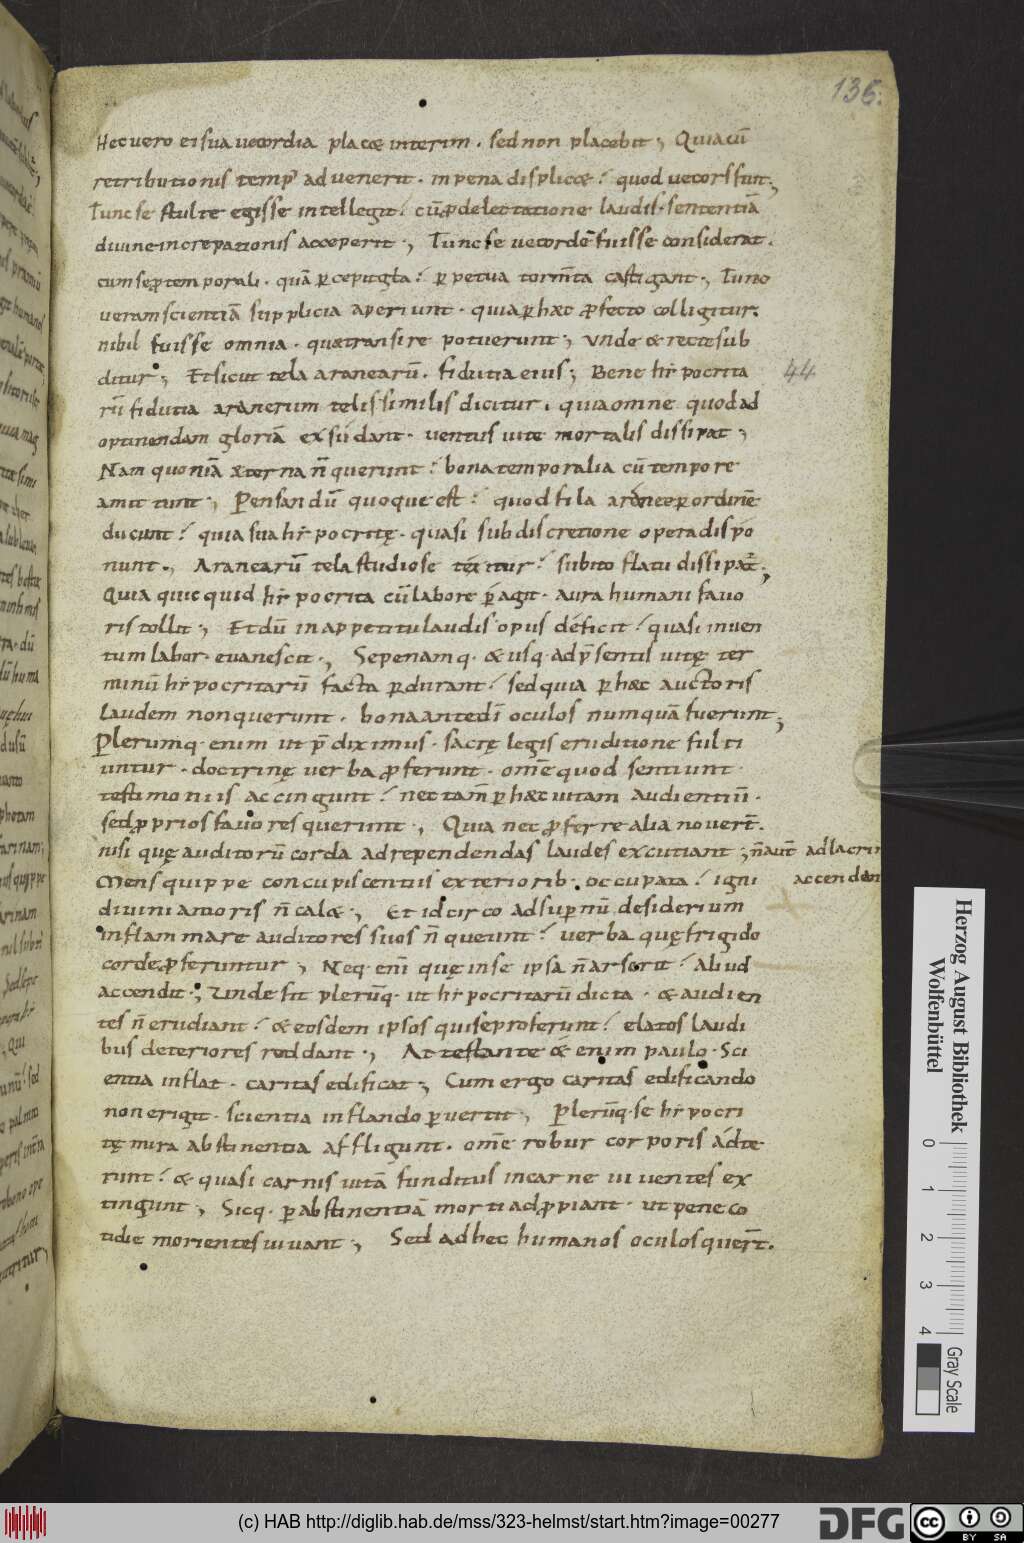 135.
Hec uero ei sua uecordia placæ interim . sed non placebit ; Quia cū
retributionis temp' aduenerit . in pena displicæ ? quod uecors fuit ;
Tunc se stulte egisse intellegit ? cū ꝓ delectatione laudis . sententiā
diuine increpationis acceperit ; Tunc se uecordē fuisse considerat .
cum se ꝓ temporali . quā ꝑcepit gła ? ꝑpetua torm̄ta castigant ; Tunc
ueram scientiā supplicia aperiunt . quia ꝑ hæc ꝓfecto colligitur .
nihil fuisse omnia . quæ transire potuerunt ; Unde & recte sub
ditur ; Et sicut tela aranearū . fidutia eius ; Bene hẏpocrita
44
rū fidutia aranerum telis similis dicitur . quia omne quod ad
optinendam gloriā exsudant . uentus uite mortalis dissipat ;
Nam quoniā æterna n̄ querunt ? bona temporalia cū tempore
amittunt ; Pensandū quoque est ? quod fila aranee ꝑ ordinē
ducunt ? quia sua hẏpocritę . quasi sub discretione opera dispo
nunt . Aranearū tela studiose texitur ? subito flatu dissipat̄ ;
Quia quicquid hẏpocrita cū labore ꝑagit . aura humani fauo
ris tollit ; Et dū in appetitu laudis opus deficit ? quasi in uen
tum labor . euanescit . Sepe namq . & usq . ad p̄sentis uitę ter
minū hẏpocritarū facta ꝑdurant ? sed quia ꝑ hæc auctoris
laudem non querunt . bona ante dī oculos numquā fuerunt ;
Plerumq . enim ut p̄diximus . sacrę legis eruditione fulti
untur . doctrinę uerba ꝓferunt . omē quod sentiunt .
testimoniis accingunt ? nec tam̄ ꝑ hæc uitam audientiū .
sed ꝓprios fauores querunt . Quia nec ꝓferre alia nouert̄ .
nisi quę auditorū corda ad rependendas laudes excutiant ; n̄ aut̄ ad lacrim
Mens quippe concupiscentiis exteriorib . occupata ? igni accenden
diuini amoris n̄ calæ ; Et idcirco ad supnū desiderium
inflammare auditores suos n̄ queunt ? uerba quę frigido
corde ꝓferuntur ; Neq . enī quę in se ipsa n̄ arserit ? aliud
accendit ; Unde fit plerūq . ut hẏpocritarū dicta . & audien
tes n̄ erudiant ? & eosdem ipsos qui se proferunt ? elatos laudi
bus deteriores reddant ; Attestante & enim paulo . Sci
entia inflat . caritas edificat ; Cum ergo caritas edificando
non erigit . scientia inflando ꝑuertit ; Plerūq . se hẏpocri
tę mira abstinentia affligunt . omē robur corporis adte
runt ? & quasi carnis uitā funditus in carne uiuentes ex
tingunt ; Sicq . ꝑ abstinentiā morti adꝓpiant . ut pene co
tidie morientes uiuant ; Sed ad hec humanos oculos quert̄ .
Herzog August Bibliothek
Wolfenbüttel
0 1 2 3 4
Gray Scale
(c) HAB http://diglib.hab.de/mss/323-helmst/start.htm?image=00277
DFG
cc BY SA